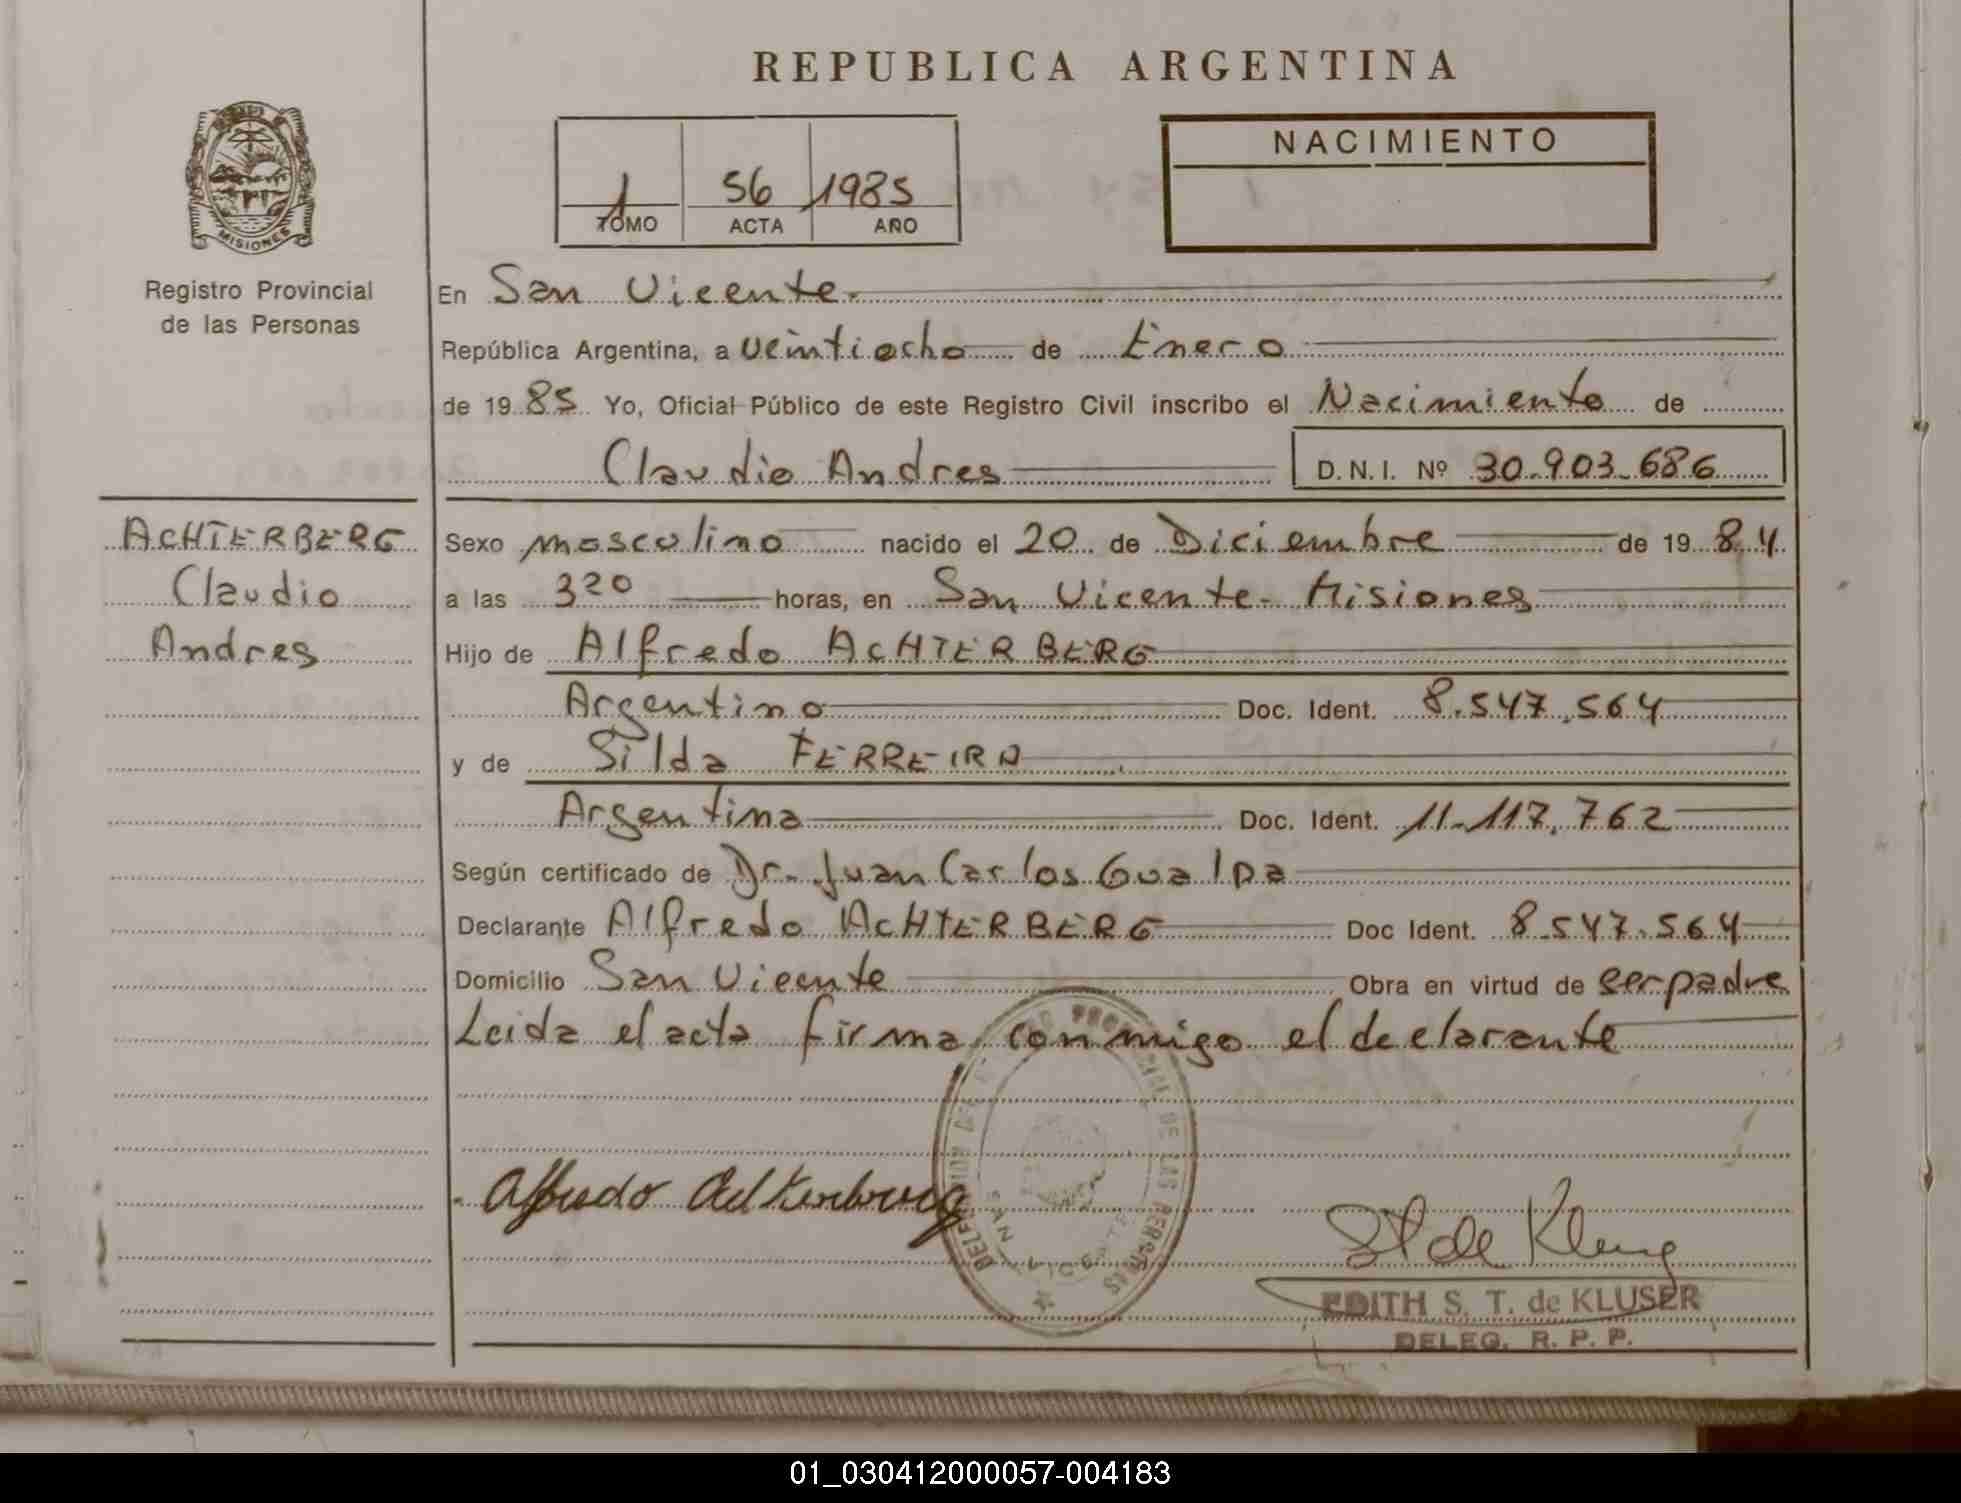 REPUBLICA ARGENTINA
MISIONES
Registro Provincial
de las Personas
1 56 1985
TOMO ACTA AÑO
NACIMIENTO
En San Vicente.
República Argentina, a veintiocho de Enero
de 19 85 Yo, Oficial Público de este Registro Civil inscribo el Nacimiento de
Claudio Andres D.N.I. Nº 30.903.686
ACHTERBERG
Claudio
Andres
Sexo masculino nacido el 20 de Diciembre de 19 84
a las 3 20 horas, en San Vicente - Misiones
Hijo de Alfredo ACHTERBERG
Argentino Doc. Ident. 8.547.564
y de Silda FERREIRA
Argentina Doc. Ident. 11.117.762
Según certificado de Dr. Juan Carlos Gualpa
Declarante Alfredo ACHTERBERG Doc Ident. 8.547.564
Domicilio San Vicente Obra en virtud de ser padre
Leida el acta firma conmigo el declarante
Alfredo Achterberg
DELEGACION DEL REGISTRO PROVINCIAL DE LAS PERSONAS
SAN VICENTE
EDITH S. T. de KLUSER
DELEG. R. P. P.
01_030412000057-004183